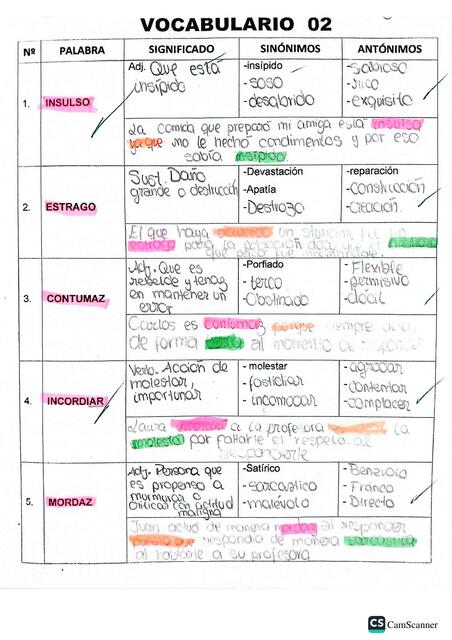 VOCABULARIO 02
Nº PALABRA SIGNIFICADO SINÓNIMOS ANTÓNIMOS
1. INSULSO
Adj. Que está
insípido
-insípido
-soso
-desabrido
-sabroso
-rico
-exquisito
La comida que preparó mi amiga está insulsa
ya que no le hecho condimentos y por eso
sabía insípido.
2. ESTRAGO
Sust. Daño
grande o destrucción
-Devastación
-Apatía
-Destrozo
-reparación
-Construcción
-Creación.
El que haya un
estrago para la población
que
3. CONTUMAZ
Adj. Que es
rebelde y tenaz
en mantener un
error
-Porfiado
-terco
-Obstinado
-Flexible
-permisivo
-dócil
Carlos es contumaz porque siempre
de forma al momento de
4. INCORDIAR
Verbo. Acción de
molestar,
importunar
-molestar
-fastidiar
-incomodar
-agradar
-contentar
-complacer
Laura a la profesora la
molesta por faltarle el respeto al
5. MORDAZ
Adj. Persona que
es propenso a
murmurar o
criticar con actitud
maligna
-Satírico
-sarcástico
-malévolo
-Benévolo
-Franco
-Directo
Juan actuó de manera mordaz al responder
que respondió de manera sarcástica
al hablarle a su profesora
CS CamScanner